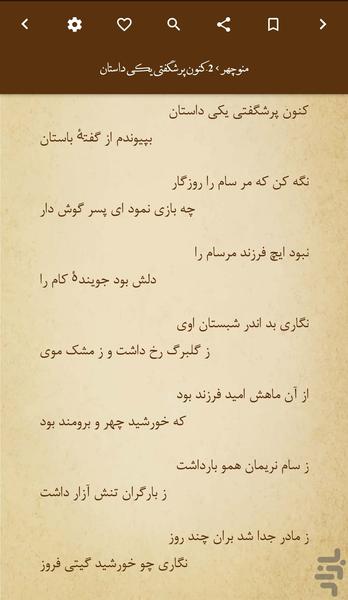 منوچهر › 2.کنون پرشگفتی یکی داستان
کنون پرشگفتی یکی داستان
بپیوندم از گفتهٔ باستان
نگه کن که مر سام را روزگار
چه بازی نمود ای پسر گوش دار
نبود ایچ فرزند مرسام را
دلش بود جویندهٔ کام را
نگاری بد اندر شبستان اوی
ز گلبرگ رخ داشت و ز مشک موی
از آن ماهش امید فرزند بود
که خورشید چهر و برومند بود
ز سام نریمان همو بارداشت
ز بارگران تنش آزار داشت
ز مادر جدا شد بران چند روز
نگاری چو خورشید گیتی فروز
بازار